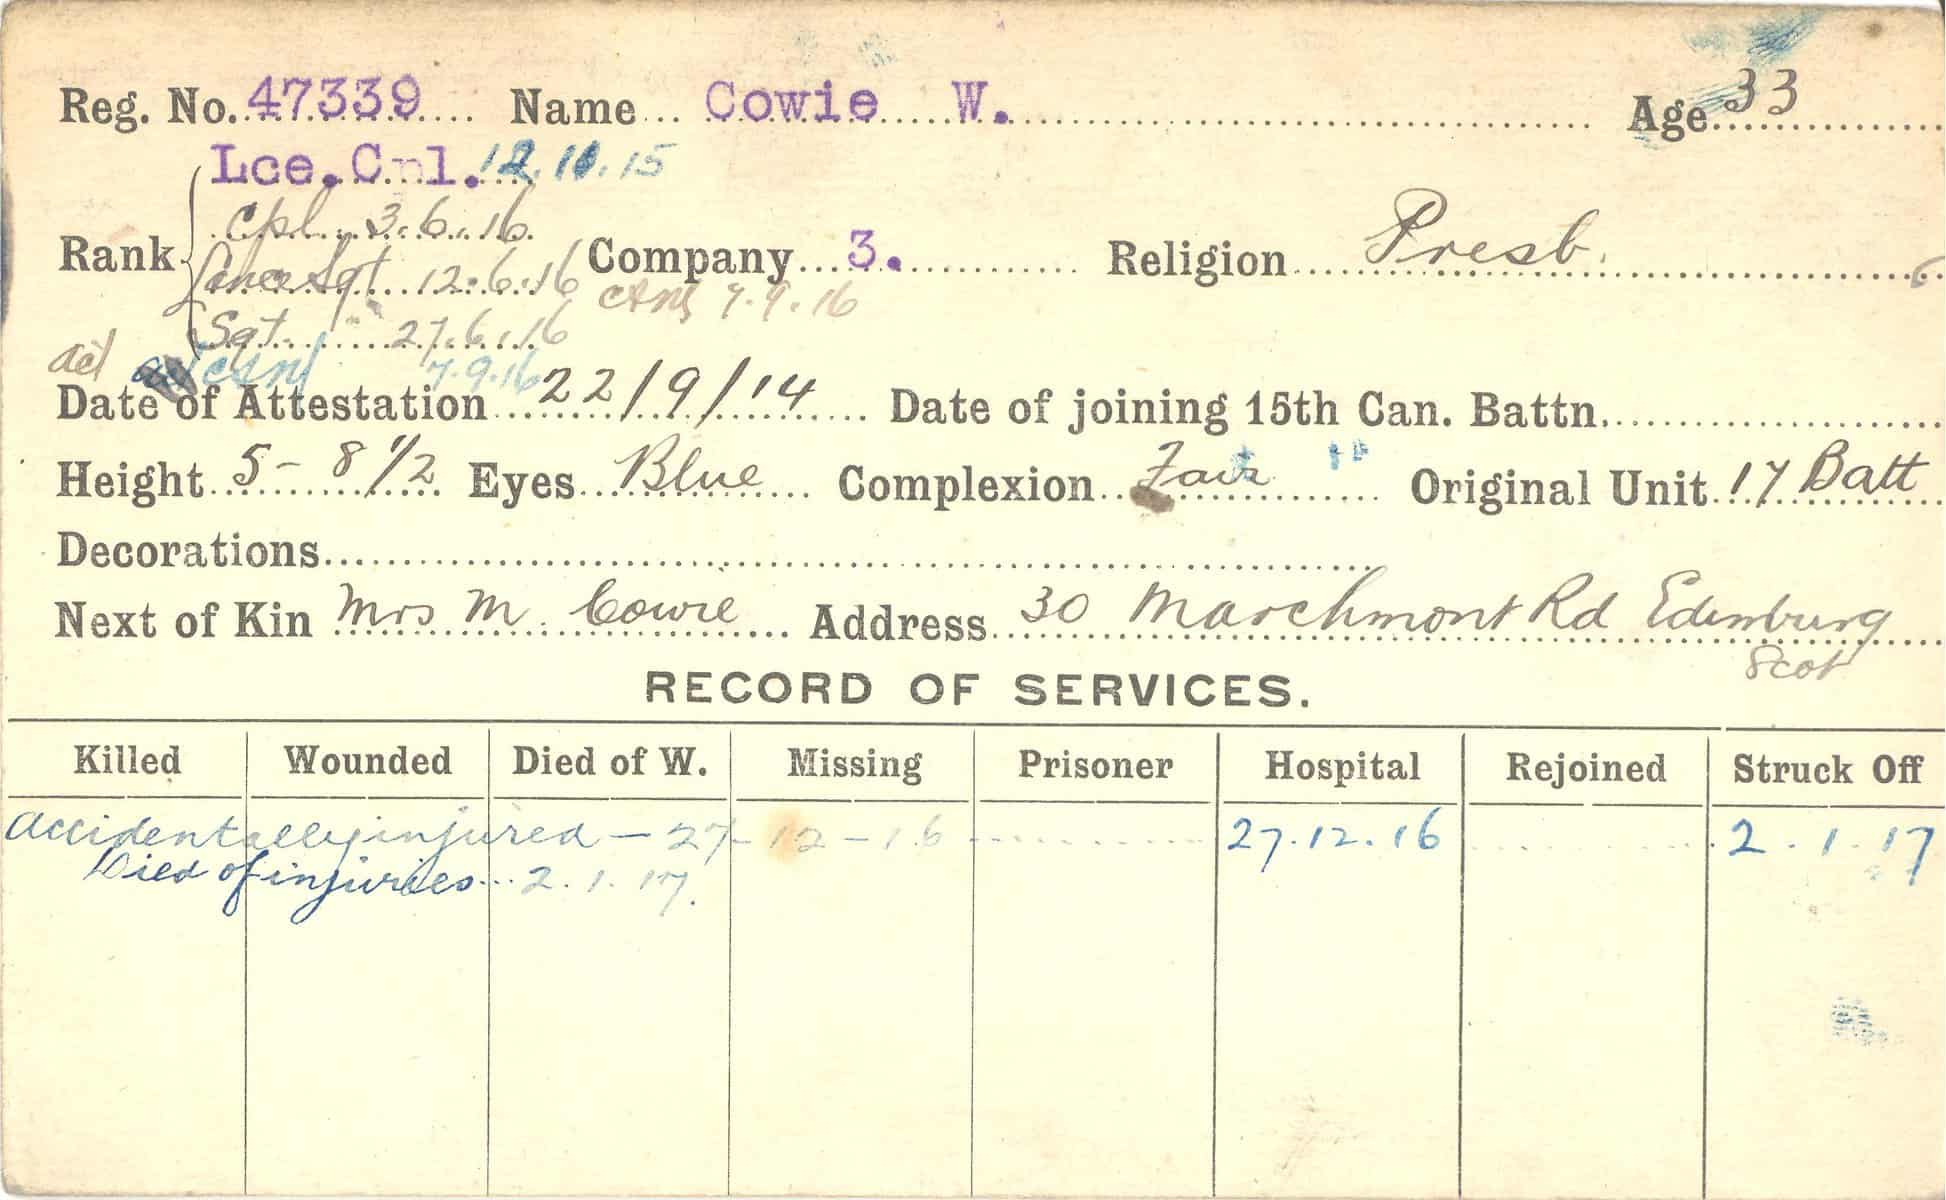 Reg. No. 47339 Name Cowie W. Age 33
Lce. Cpl. 12.10.15
Cpl. 3.6.16
Rank Company 3. Religion Presb.
Lance Sgt 12.6.16
CSM 7.9.16
Sgt. 27.6.16
act CSM 7.9.16
Date of Attestation 22/9/14 Date of joining 15th Can. Battn.
Height 5-8 1/2 Eyes Blue Complexion Fair Original Unit 17 Batt
Decorations
Next of Kin Mrs M. Cowie Address 30 Marchmont Rd Edinburg
Scot
RECORD OF SERVICES.
Killed Wounded Died of W. Missing Prisoner Hospital Rejoined Struck Off
Accidentally injured - 27-12-16 27.12.16 2.1.17
Died of injuries 2.1.17.